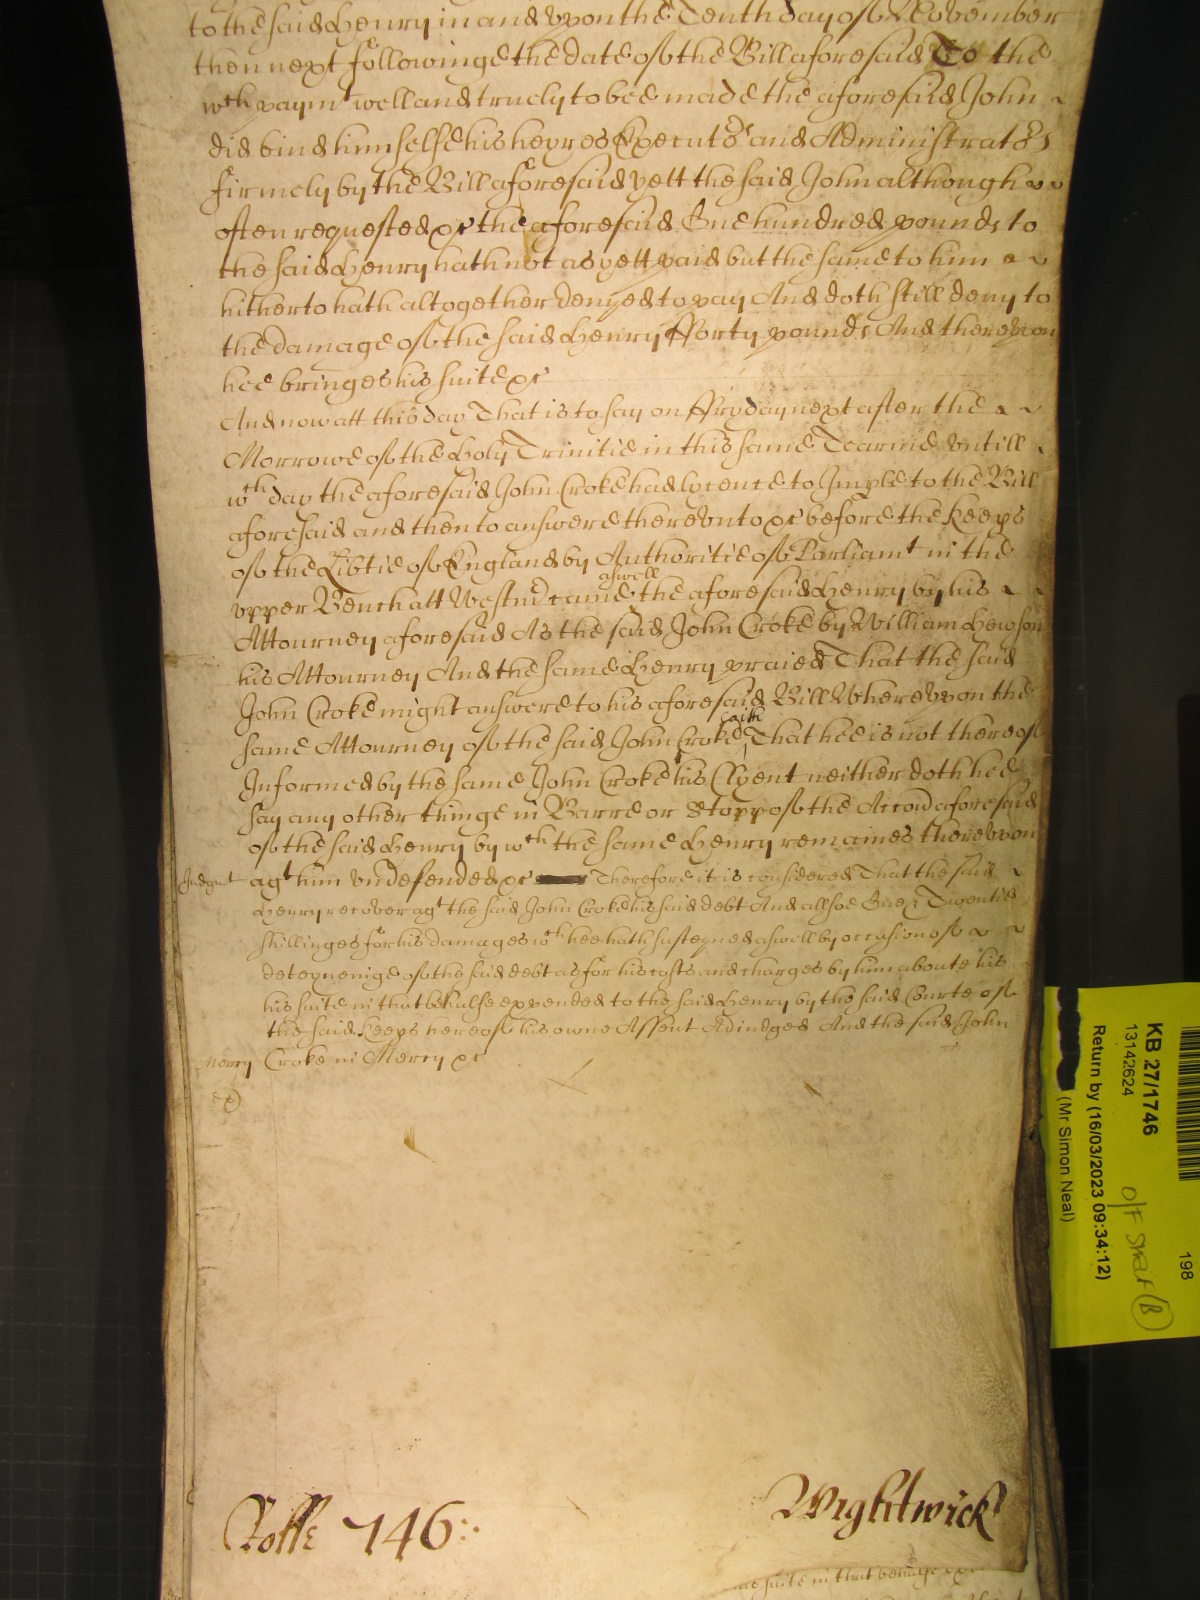 to the said Henry in and vpon the Tenth day of November
then next followinge the date of the Bill aforesaid To the
wch paymt well and truely to bee made the aforesaid John
did bind himselfe his heyres Executrs and Administratrs
firmely by the Bill aforesaid yett the said John although
often requested &c the aforesaid One hundred pounds to
the said Henry hath not as yett paid but the same to him
hitherto hath altogether denyed to pay And doth still deny to
the damage of the said Henry fforty pounds And therevpon
hee bringes his suite &c
And now att this day That is to say on ffryday next after the
Morrowe of the Holy Trinitie in this same Tearme vntill
wch day the aforesaid John Croke had lycence to Imple to the Bill
aforesaid and then to answere therevnto &c before the Keeps
of the Libtie of England by Authoritie of Parliamt in the
vpper Bench att Westmr came aswell the aforesaid Henry by his
Attourney aforesaid As the said John Croke by William Hewson
his Attourney And the same Henry praied That the said
John Croke might answere to his aforesaid Bill Wherevpon the
same Attourney of the said John Croke saith That hee is not thereof
Informed by the same John Croke his Clyent neither doth hee
say any other thinge in Barre or stopp of the Accon aforesaid
of the said Henry by wch the same Henry remaines therevpon
Judgmt agt him vndefended &c Therefore it is considered That the said
Henry recover agt the said John Croke his said debt And allsoe Twentie
shillinges for his damages wch hee hath susteyned aswell by occasion of
deteyneinge of the said debt as for his costs and charges by him aboute his
his suite in that behalfe expended to the said Henry by the said Courte of
the said Keeps hereof his owne Assent Adiudged And the said John
Mercy Croke in Mercy &c
Rolle 746
Wightwick
suite in that behalfe
KB 27/1746
13142624
Return by (16/03/2023 09:34:12)
(Mr Simon Neal)
198
O/F Strat (B)